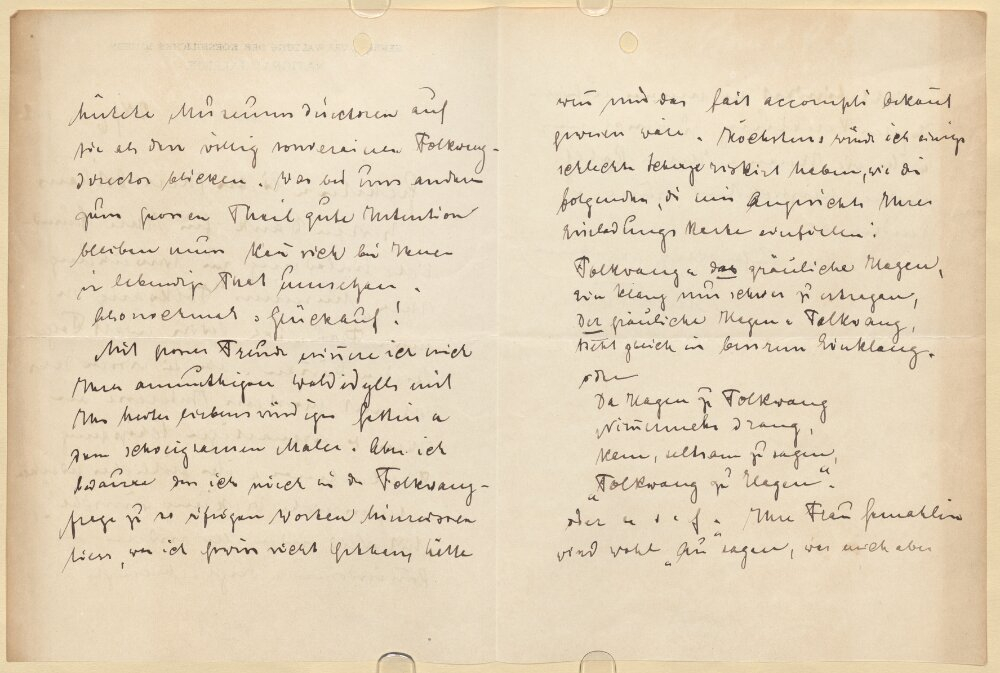 Museumsdirectoren auf
Sie als den völlig souverainen Folkwang-
director blicken. Was bei uns andern
zum grossen Theil gute Intention
bleiben muss kan sich bei Ihnen
in lebendige That umsetzen.
Also nochmals: Glückauf!
Mit grosser Freude erinnere ich mich
Ihres anmuthigen Waldidylls mit
Ihrer liebenswürdigen Gattin u
dem schweigsamen Maler. Aber ich
bedaure dass ich mich in der Folkwang-
frage zu so eifrigen Worten hinreissen
liess, was ich gewiss nicht gethan hätte
wen mir das fait accompli bekant
gewesen wäre. Höchstens würde ich einige
schlechte Scherze riskirt haben, wie die
folgenden, die mir Angesichts Ihrer
Einladungskarte einfielen:
Folkwang u das gräuliche Hagen,
Ein Klang nur schwer zu ertragen,
Der gräuliche Hagen u Folkwang,
Steht gleich in besserem Einklang.
oder
Da Hagen zu Folkwang
Nimmermehr drang,
Kam, seltsam zu sagen,
"Folkwang zu Hagen".
oder u s f. Ihre Frau Gemahlin
wird wohl "Au" sagen, was mich aber